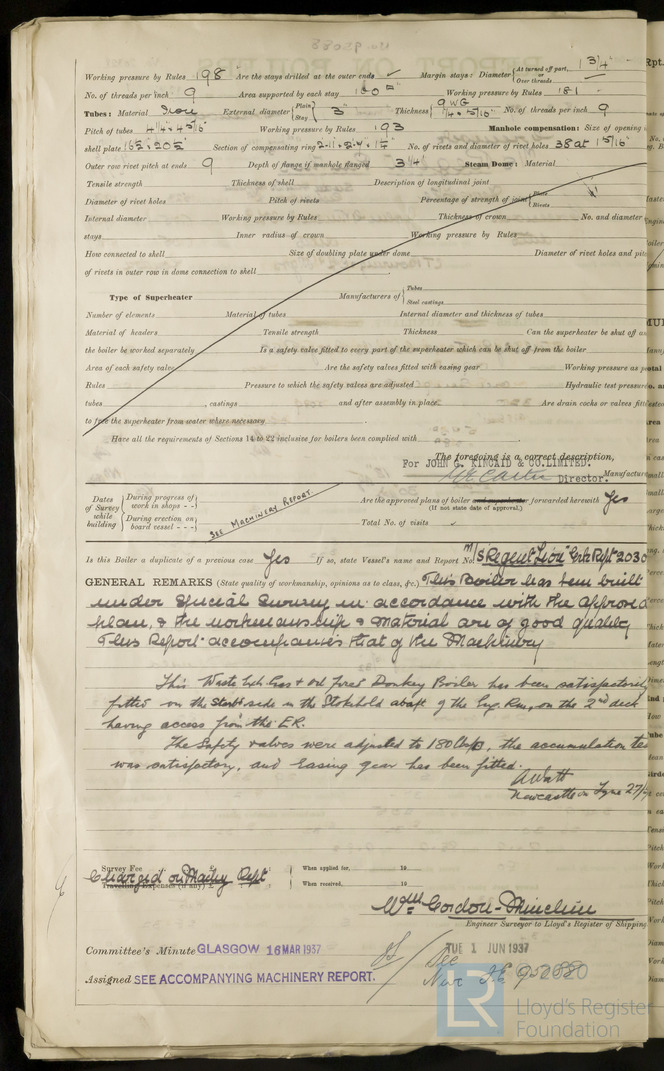 Working pressure by Rules 198 Are the stays drilled at the outer ends ✓ Margin stays: Diameter { At turned off part, or Over threads 1 3/4"
No. of threads per inch 9 Area supported by each stay Working pressure by Rules 181
Tubes: Material Iron External diameter { Plain Stay 3" Thickness { 9 WG 1/4" & 5/16" No. of threads per inch 9
Pitch of tubes Working pressure by Rules 193 Manhole compensation: Size of opening in
shell plate Section of compensating ring No. of rivets and diameter of rivet holes 38 at 15/16"
Outer row rivet pitch at ends 9 Depth of flange if manhole flanged 3 1/4" Steam Dome: Material
Tensile strength Thickness of shell Description of longitudinal joint
Diameter of rivet holes Pitch of rivets Percentage of strength of joint { Plate Rivets
Internal diameter Working pressure by Rules Thickness of crown No. and diameter
stays Inner radius of crown Working pressure by Rules
How connected to shell Size of doubling plate under dome Diameter of rivet holes and pitch
of rivets in outer row in dome connection to shell
Type of Superheater Manufacturers of { Tubes Steel castings
Number of elements Material of tubes Internal diameter and thickness of tubes
Material of headers Tensile strength Thickness Can the superheater be shut off
the boiler be worked separately Is a safety valve fitted to every part of the superheater which can be shut off from the boiler
Area of each safety valve Are the safety valves fitted with easing gear Working pressure as
Rules Pressure to which the safety valves are adjusted Hydraulic test pressure
tubes , castings and after assembly in place Are drain cocks or valves fitted
to free the superheater from water where necessary
Have all the requirements of Sections 14 to 22 inclusive for boilers been complied with
The foregoing is a correct description,
For JOHN G. KINCAID & CO. LIMITED.
Director. Manufacturer
Dates of Survey while building { During progress of work in shops - - During erection on board vessel - - - } SEE MACHINERY REPORT. Are the approved plans of boiler and superheater forwarded herewith Yes
(If not state date of approval.)
Total No. of visits
Is this Boiler a duplicate of a previous case Yes If so, state Vessel's name and Report No. M/S Regent Lion Grk Rpt 2030
GENERAL REMARKS (State quality of workmanship, opinions as to class, &c.) This Boiler has been built
under Special Survey in accordance with the approved
plan, & the workmanship & material are of good quality
This Report accompanies that of the Machinery
This Waste Exh Gas & oil fired Donkey Boiler has been satisfactorily
fitted on the Starbd side in the Stokehold abaft of the Eng. Rm, on the 2nd deck
having access from the E.R.
The Safety valves were adjusted to 180 lbs, the accumulation test
was satisfactory, and easing gear has been fitted.
A Watt
Newcastle on Tyne 27/
Survey Fee £ When applied for, 19
Charged on Mchy Rpt
Travelling Expenses (if any) £ When received, 19
Wm Gordon-Minchin
Engineer Surveyor to Lloyd's Register of Shipping
Committee's Minute GLASGOW 16 MAR 1937 TUE 1 JUN 1937
Assigned SEE ACCOMPANYING MACHINERY REPORT. See
LR Lloyd's Register
Foundation